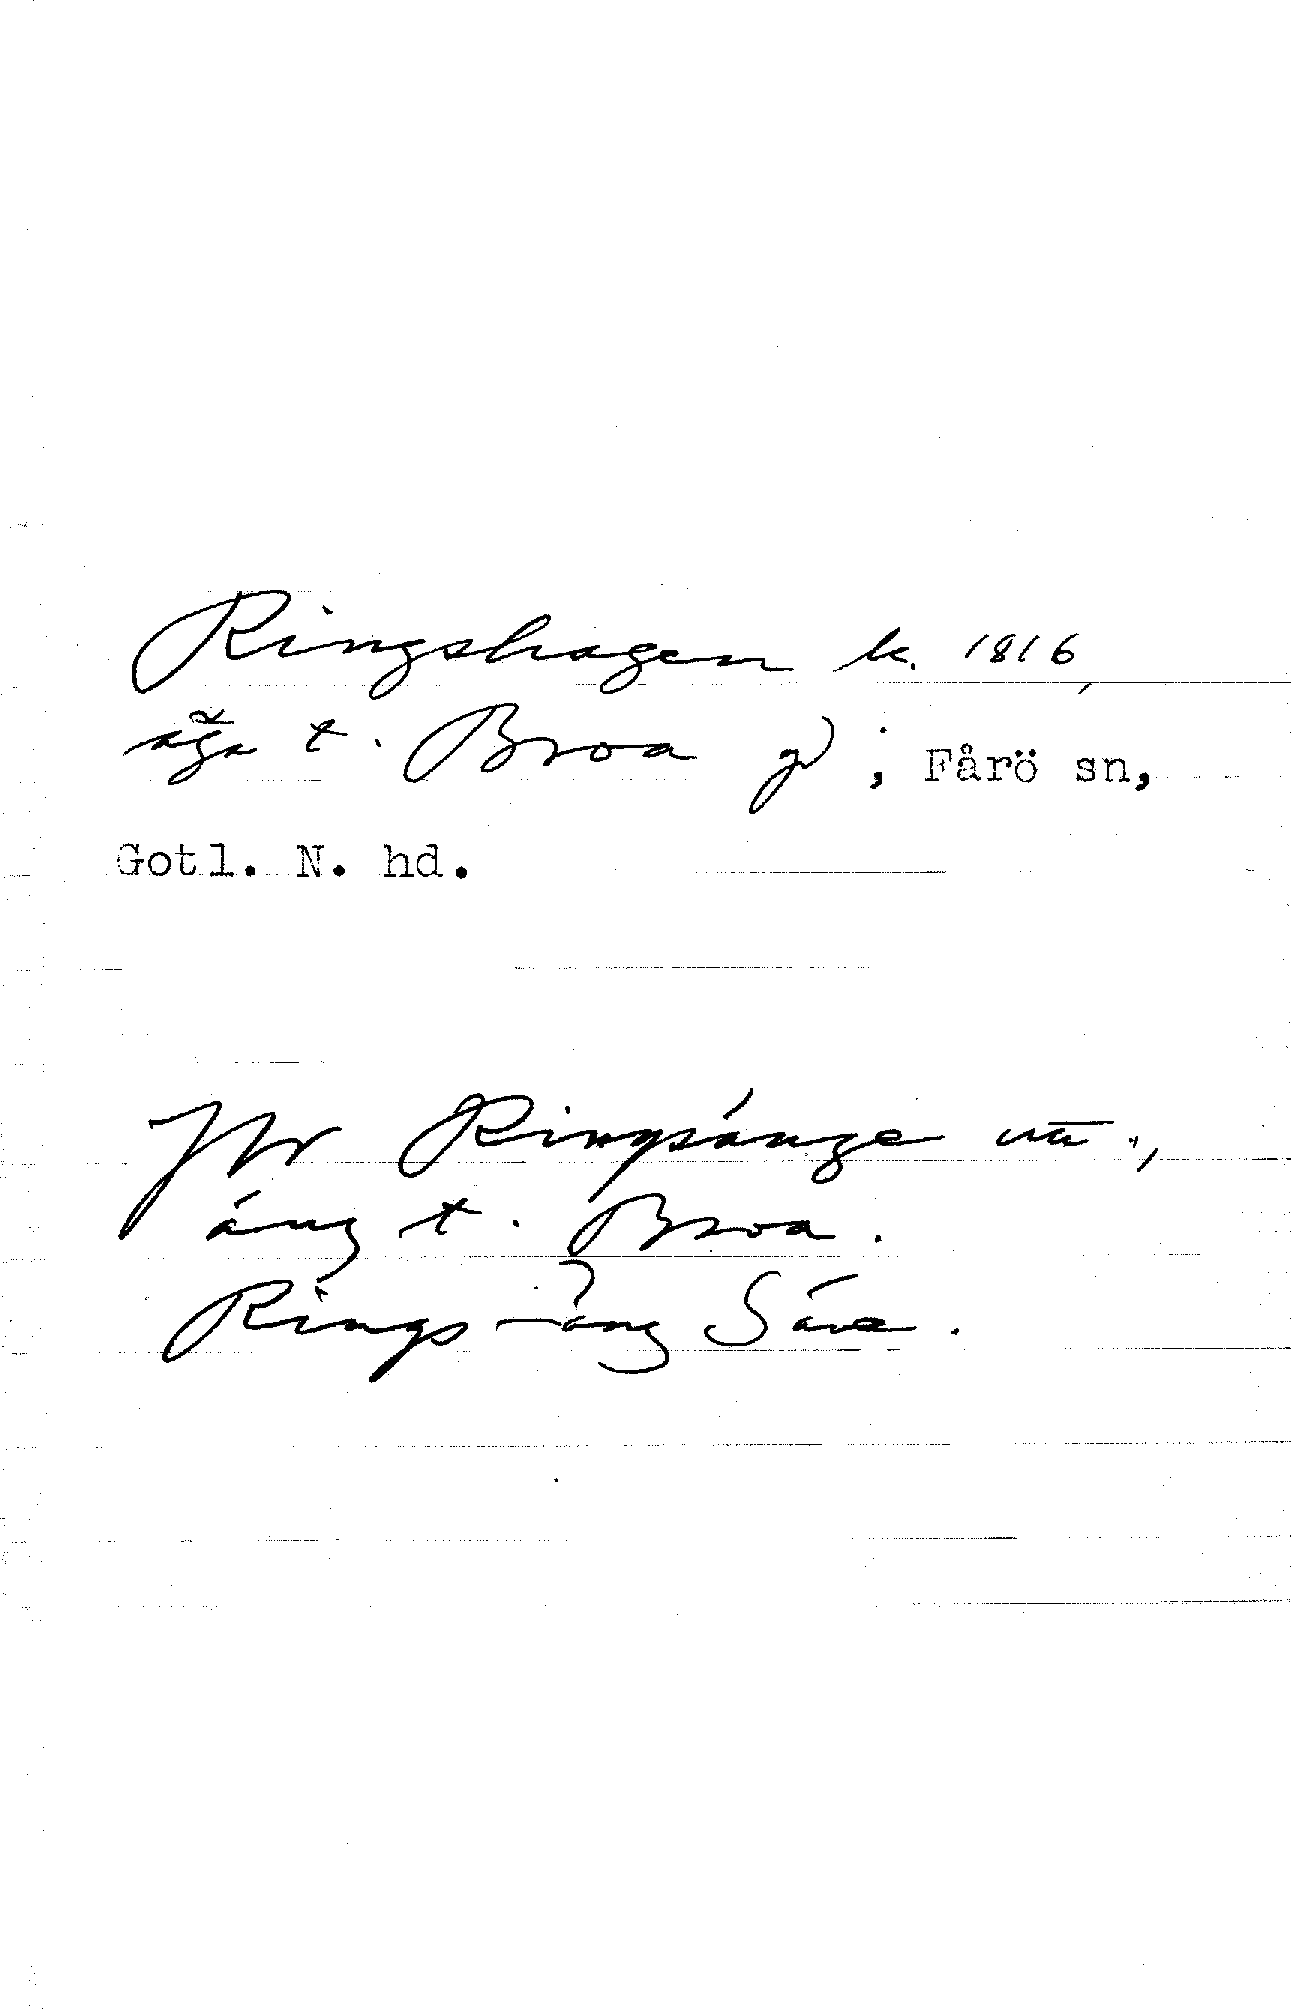 Ringshagen k. 1816,
äga t. Broa gd; Fårö sn,
Gotl. N. hd.
Jfr Ringsänge
äng t. Broa.
Rings-äng Säve.